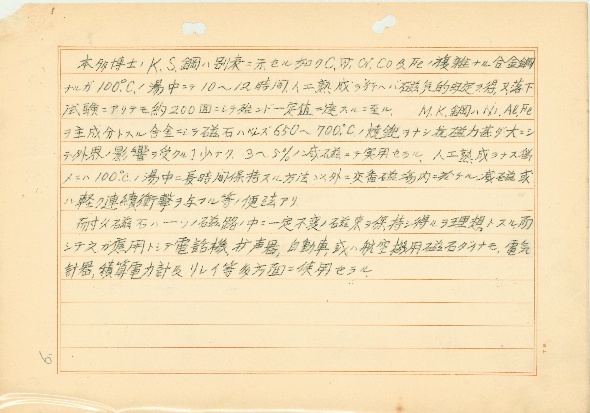 本多博士ノ K.S.鋼ハ別表ニ示セル如ク C, W, Cr, Co 及 Fe ノ複雑ナル合金鋼
ナルガ 100°C ノ湯中ニテ 10〜12 時間人工熟成ヲ行ヘバ磁気的安定ヲ得又落下
試験ニアリテモ約200回ニシテ殆ンド一定値ニ達スルニ至ル. M.K.鋼ハ Ni, Al, Fe
ヲ主成分トスル合金ニシテ磁石ハ 650〜700°C ノ焼鈍ヲナシ抗磁力甚ダ大ニシ
テ外界ノ影響ヲ受クルコト少ナク. 3〜5%ノ減磁ニテ実用セラル. 人工熟成ヲナス為
メニハ 100°C ノ湯中ニ長時間保持スル方法以外ニ交番磁場内ニ於ケル減磁或
ハ軽ク連続衝撃ヲ与フル等ノ便法アリ
耐久磁石ハ一ツノ磁路ノ中ニ一定不変ノ磁束ヲ保持シ得ルヲ理想トスル而
シテ之ガ應用トシテ電話機, 拡声器, 自動車, 或ハ航空機用磁石ダイナモ, 電気
計器, 積算電力計及リレイ等多方面ニ使用セラル.
6.